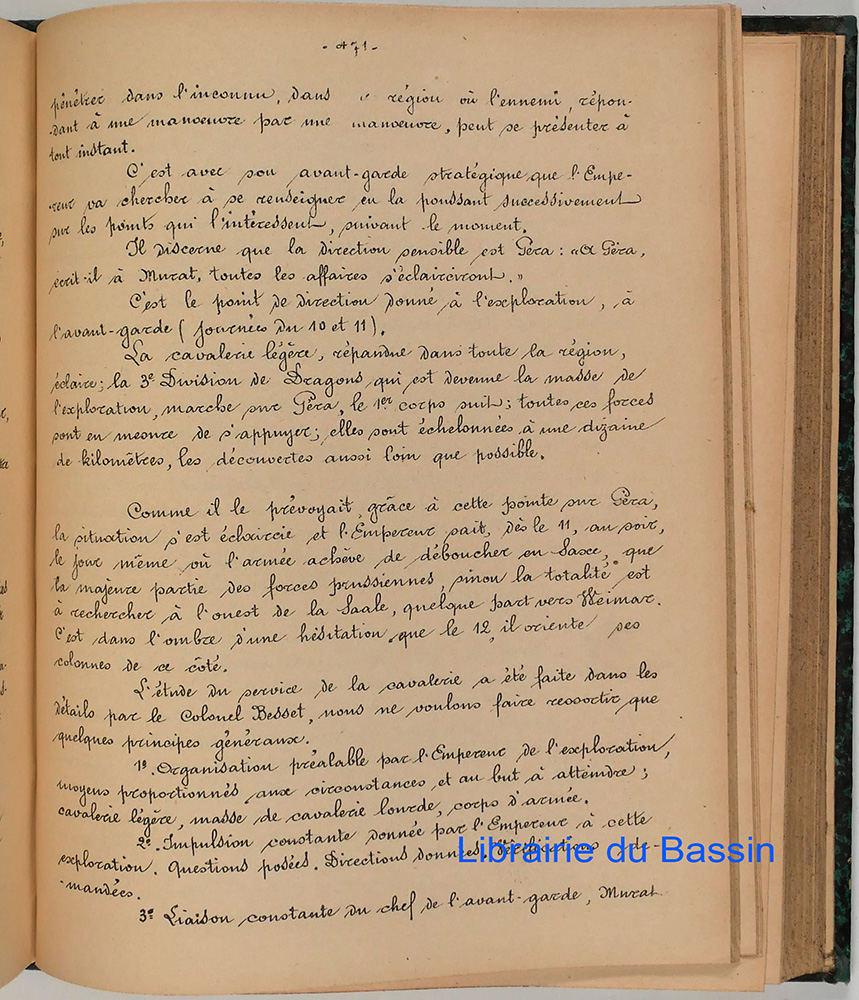 - 471 -
pénétrer dans l'inconnu, dans région où l'ennemi, répon-
-dant à une manoeuvre par une manoeuvre, peut se présenter à
tout instant.
C'est avec son avant-garde stratégique que l'Empe-
-reur va chercher à se renseigner en la poussant successivement
sur les points qui l'intéressent, suivant le moment.
Il discerne que la direction sensible est Géra : "A Géra,
écrit-il à Murat, toutes les affaires s'éclairciront."
C'est le point de direction donné à l'exploration, à
l'avant-garde (journées du 10 et 11).
La cavalerie légère, répandue dans toute la région,
éclaire; la 3e Division de Dragons qui est devenue la masse de
l'exploration, marche sur Géra, le 1er corps suit; toutes ces forces
sont en mesure de s'appuyer; elles sont échelonnées à une dizaine
de kilomètres, les découvertes aussi loin que possible.
Comme il le prévoyait, grâce à cette pointe sur Géra,
la situation s'est éclaircie et l'Empereur sait, dès le 11, au soir,
le jour même où l'armée achève de déboucher en Saxe, que
la majeure partie des forces prussiennes, sinon la totalité est
à rechercher à l'ouest de la Saale, quelque part vers Weimar.
C'est dans l'ombre d'une hésitation que le 12, il oriente ses
colonnes de ce côté.
L'étude du service de la cavalerie a été faite dans les
détails par le Colonel Besset, nous ne voulons faire ressortir que
quelques principes généraux.
1º. Organisation préalable par l'Empereur de l'exploration,
moyens proportionnés aux circonstances et au but à atteindre;
cavalerie légère, masse de cavalerie lourde, corps d'armée.
2º. Impulsion constante donnée par l'Empereur à cette
exploration. Questions posées. Directions données. de-
-mandées.
3º Liaison constante du chef de l'avant-garde, Murat
Librairie du Bassin